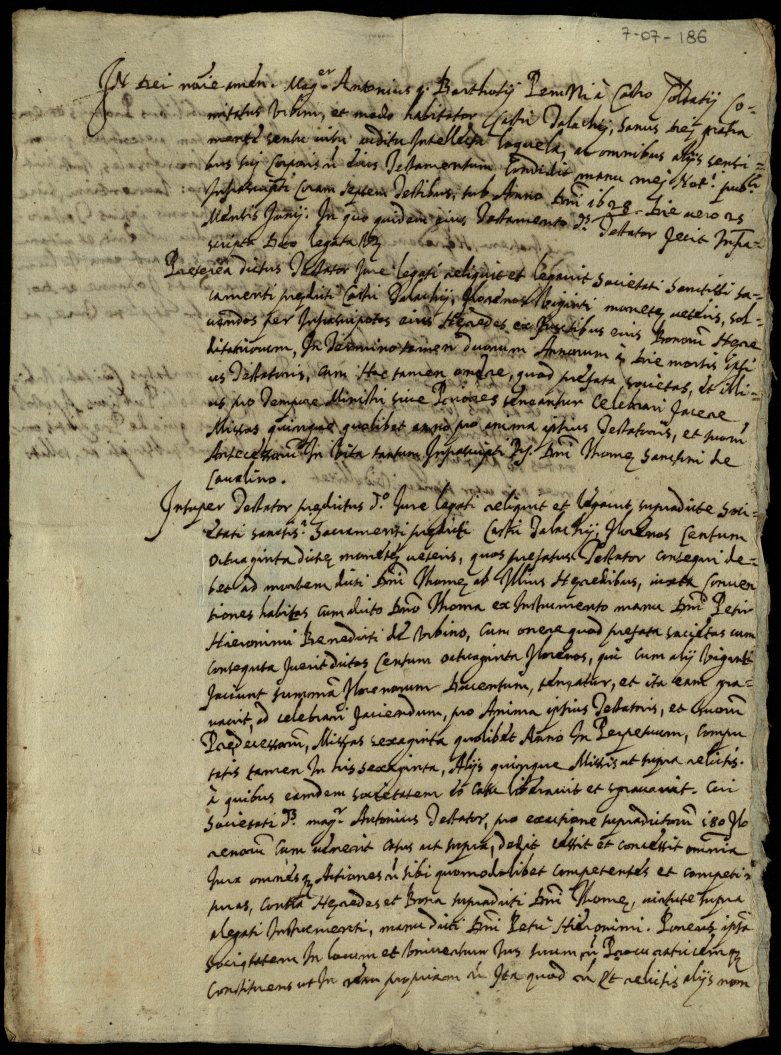 7-07-186
In Dei noie amen. Mag.er Antonius q. Bartholi à Castro Co-
mitatus Urbini, et modo habitator Castri Talachij, sanus Dej gratia
mente sensu visu auditu Intellectu loquela, ac omnibus alijs sensi-
bus sui Corporis suum Testamentum Condidit manu mej Not.i publi.
Infrascripti Coram septem Testibus, sub Anno Dni 1628. Die vero 25
Mentis Junij. In quo quidem eius Testamento d.s Testator fecit Infra-
scripta Duo legata
Preterea dictus Testator Jure legati reliquit et legavit Societati Sanctissi Sa-
cramenti prediti Castri Talachij, florenos Viginti monetę veteris, sol-
vendos per Infrascriptos eius Hęredes ex fructibus eius Bonorũ Here
ditariorum, In Termino tamen Duorum Annorum à Die mortis ipsi-
us Testatoris, cum Hac tamen onere, quod prefata societas, et illi-
us pro Tempore Ministri sive Priores teneantur Celebrari facere
Missas quinque quolibet anno pro anima ipsius Testatoris, et suorũ
Antecessorũ In Vita tantum Infrascripti Dni Thomę Sanctini de
Cavalino.
Insuper Testator predictus d.o Jure legati reliquit et legavit supradicte Soci-
etati sanctis.i Sacramenti prediti Castri Talachij, florenos Centum
octuaginta dictę monetę veteris, quos prefatus Testator consequi de-
bet ad mortem dicti Dni Thomę ab Illius Hęredibus, iuxta Conven
tiones habitas cum dicto Dno Thoma ex Instrumento manu Dni Petri
Hieronimi Benedicti de Urbino, Cum onere quod prefata societas cum
consequta fuerit dictos Centum octuaginta florenos, qui cum alijs Viginti
faciunt summã florenorum Ducentum, teneatur, et ita eam gra-
vavit, ad celebrari faciendum, pro Anima ipsius Testatoris, et suorũ
Predecessorũ, Missas sexaginta quolibet Anno In Perpetuum, Compu
tatis tamen In his sexaginta, Alijs quinque Missis ut supra relictis.
à quibus eamdem societatem eo Casu liberavit et sgravavit. Cui
Societati d.s mag.r Antonius Testator, pro exactione supradictorũ 180 flo
renorũ Cum venerit casus ut supra, dedit cessit et concessit omnia
Jura omnesq Actiones sibi quomodolibet competentes et competi-
turas, Contra Hęredes et Bona supradicti Dni Thomę, virtute supra
alegati Instrumenti, manu dicti Dni Petri Hieronimi. Ponens ipsã
societatem In locum et Universum Jus suum Procuratricem
Constituens ut In rem propriam Ita quod et relictis alijs nom